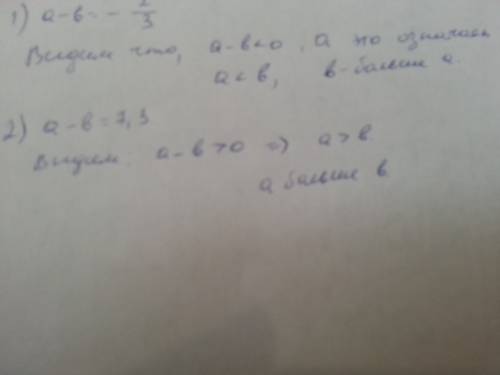 1) а-в = - 2/3
Видим что, а-в<0, а это означает
а<в, в-больше а.
2) а-в = 7,3
Видим: а-в>0 => а>в.
а больше в